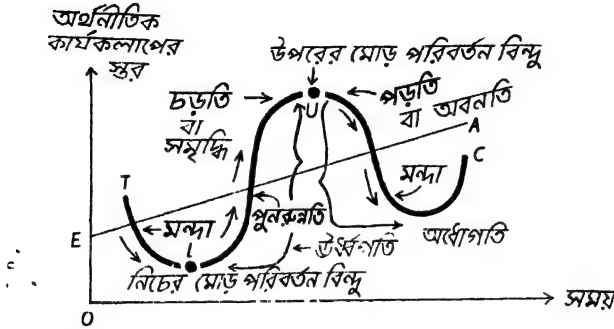 অর্থনীতিক
কার্যকলাপের
স্তর
উপরের মোড় পরিবর্তন বিন্দু
চড়তি
বা
সমৃদ্ধি
U
পড়তি
বা অবনতি
A
C
T
মন্দা
মন্দা
পুনরুন্নতি
E
ঊর্ধ্বগতি
অধোগতি
L
নিচের মোড় পরিবর্তন বিন্দু
সময়
O